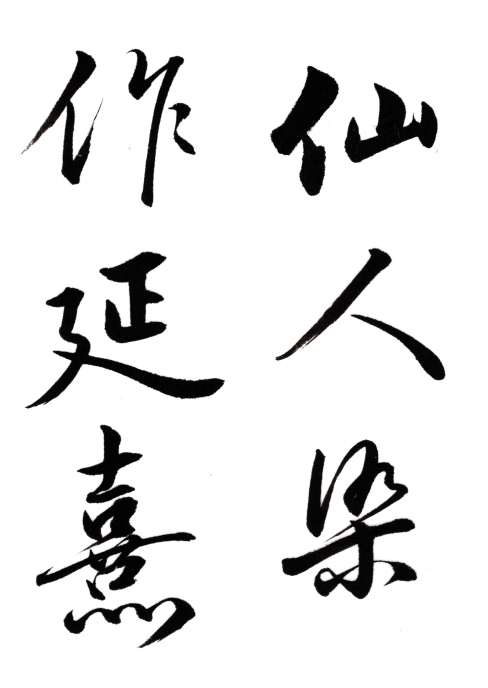 仙人染
作延熹